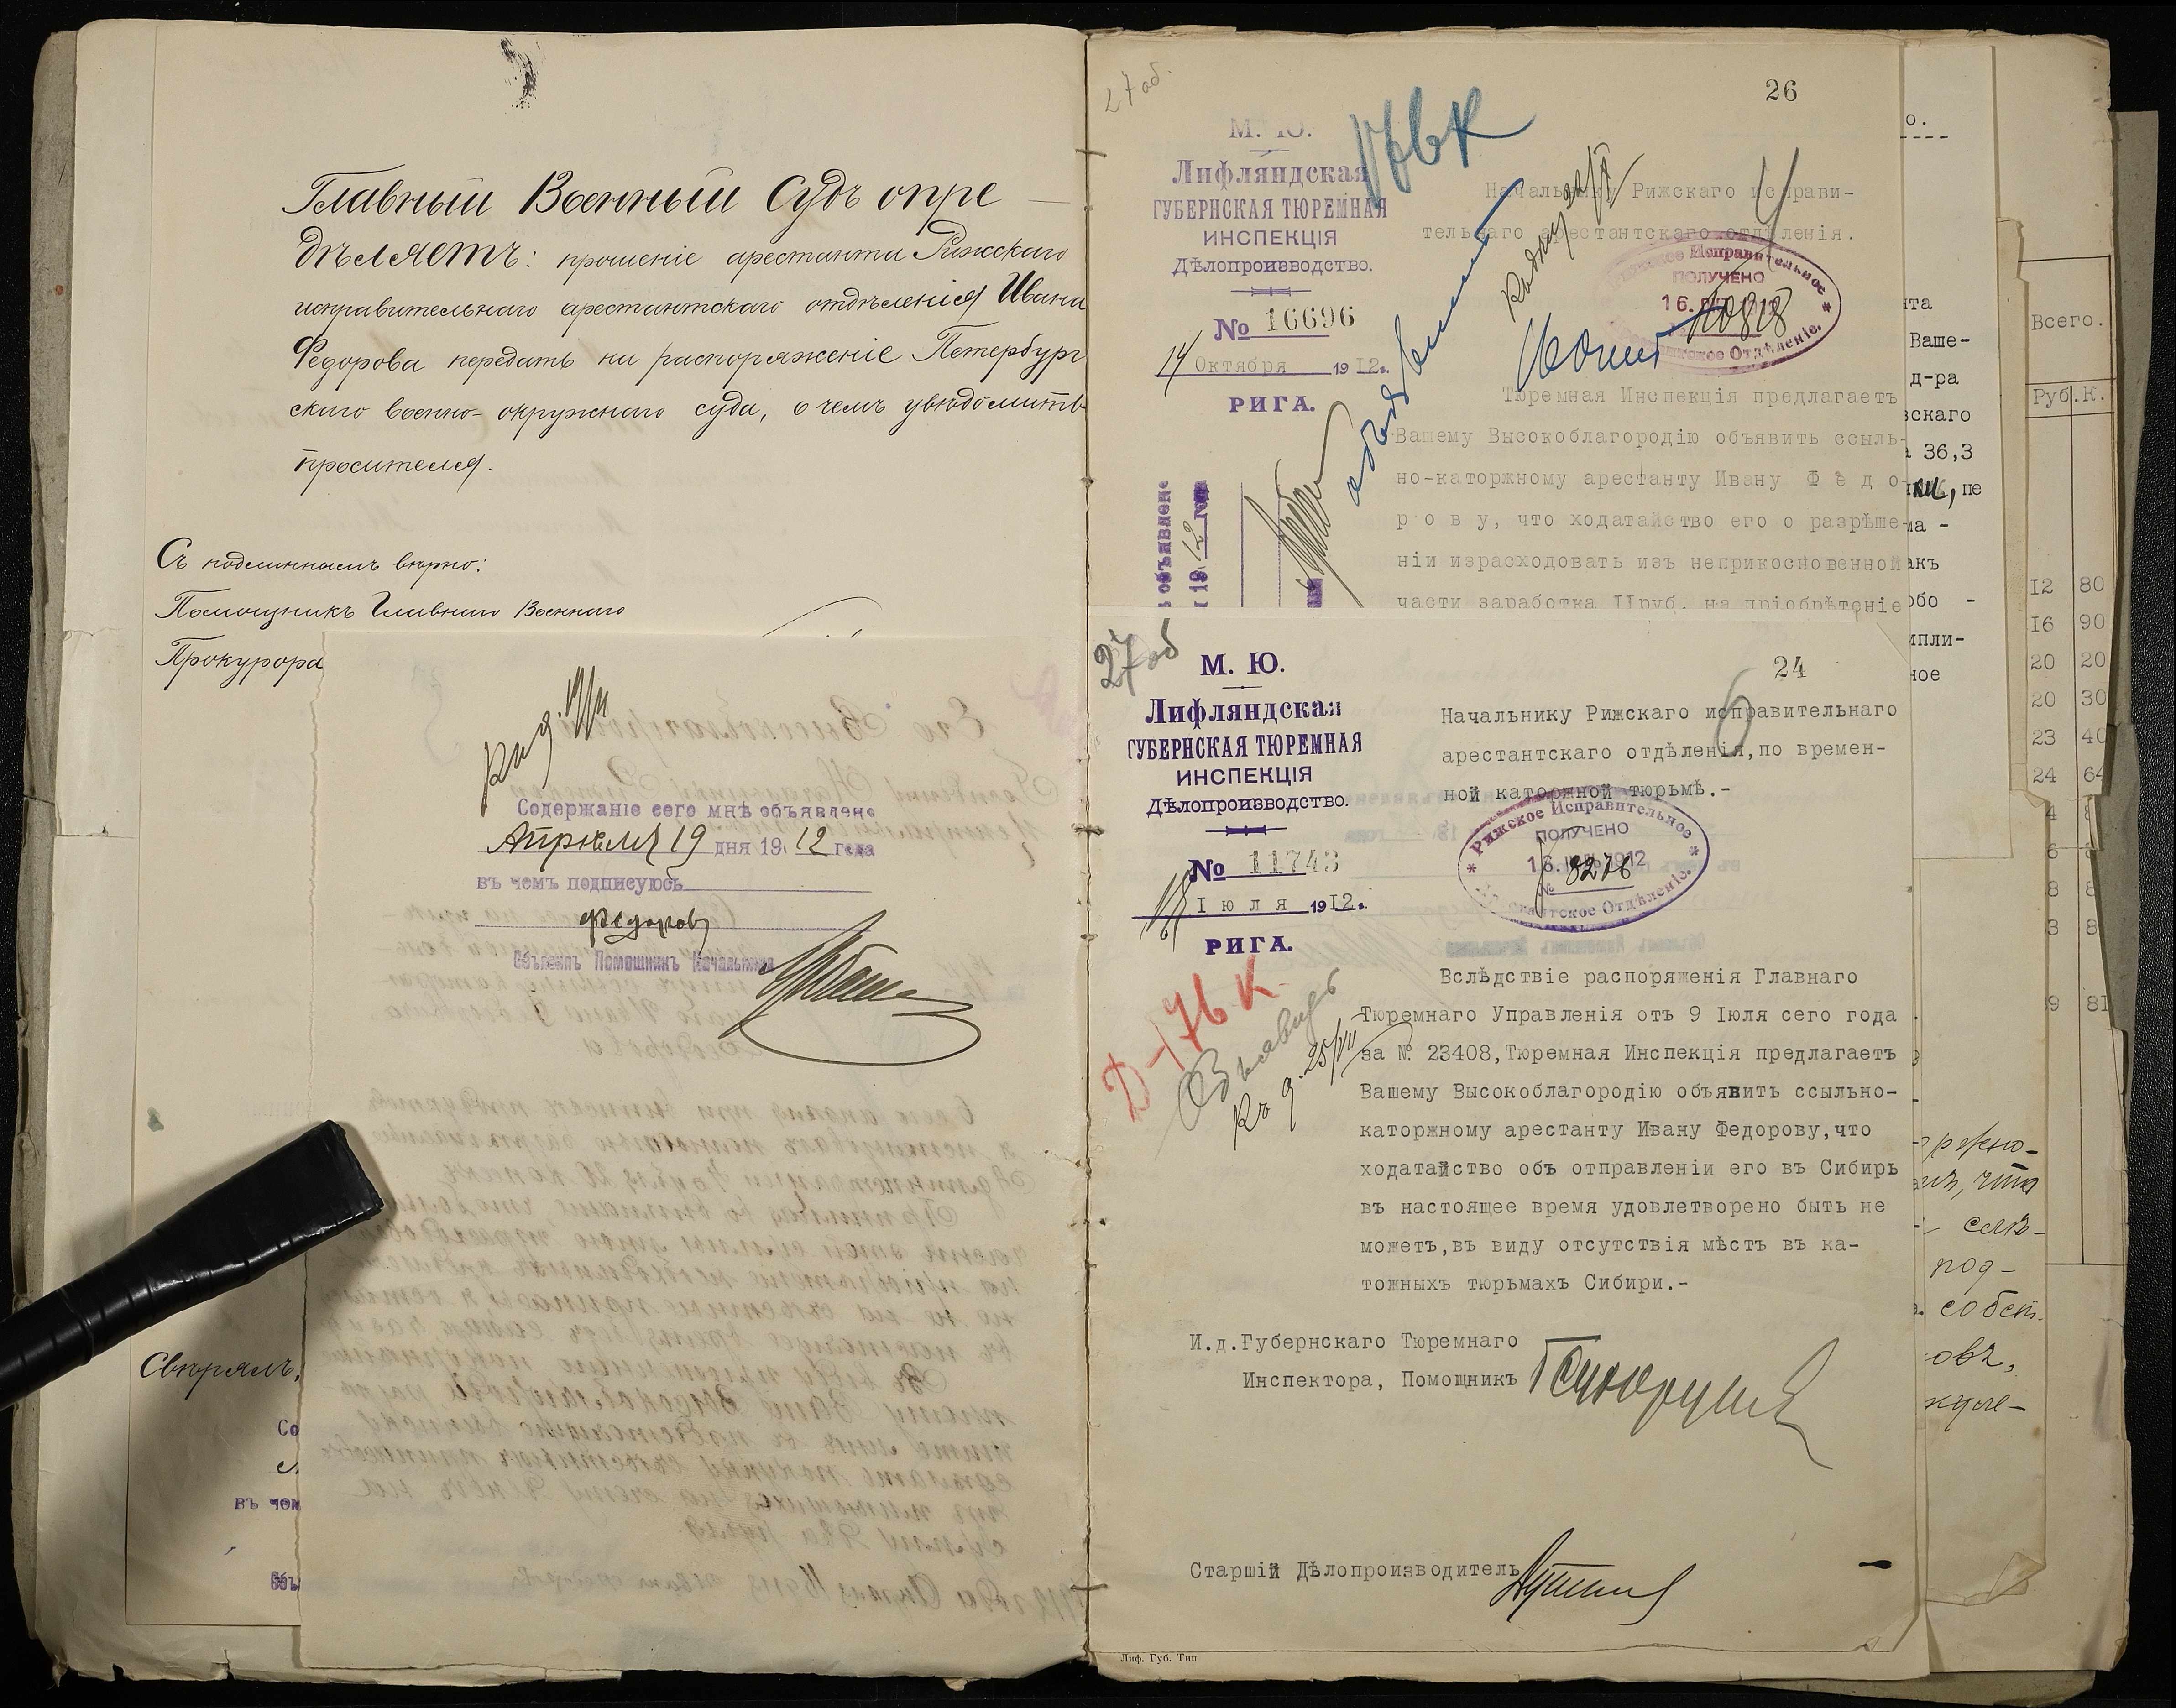 Главный Военный Судъ опре
дѣляетъ: прошеніе арестанта Рижскаго
исправительнаго арестантскаго отдѣленія Ивана
Федорова передать на распоряженіе Петербург
скаго военно-окружнаго суда, о чемъ увѣдомить
просителя.
Съ подлиннымъ вѣрно:
Помощникъ Главнаго Военнаго
Прокурора
Свѣрялъ:
Со
въ чем
Объ
Содержаніе сего мнѣ объявлено
Апрѣля 19 дня 1912 года
въ чемъ подписуюсь
Федоровъ
Объявилъ Помощникъ Начальника
27 об.
26
М. Ю.
176к
Лифляндская
ГУБЕРНСКАЯ ТЮРЕМНАЯ
ИНСПЕКЦІЯ
Дѣлопроизводство.
№ 16696
14 Октября 1912.
РИГА.
Начальнику Рижскаго исправи-
тельнаго арестантскаго отдѣленія.
Рижское Исправительное
ПОЛУЧЕНО
16.
10818
Арестантское Отдѣленіе.
Тюремная Инспекція предлагаетъ
Вашему Высокоблагородію объявить ссыль-
но-каторжному арестанту Ивану Ф ѣ д о-
р о в у, что ходатайство его о разрѣше-
ніи израсходовать изъ неприкосновенной
части заработка IIруб. на пріобрѣтеніе
объявлено
1912 года
27 об
24
М. Ю.
Лифляндская
ГУБЕРНСКАЯ ТЮРЕМНАЯ
ИНСПЕКЦІЯ
Дѣлопроизводство.
№ 11743
Іюля 1912.
РИГА.
Начальнику Рижскаго исправительнаго
арестантскаго отдѣленія,по времен-
ной каторжной тюрьмѣ.-
Рижское Исправительное
ПОЛУЧЕНО
16. 1912
№ 8276
Арестантское Отдѣленіе.
Д-176 К.
Объявить
Къ д. 25/VII
Вслѣдствіе распоряженія Главнаго
Тюремнаго Управленія отъ 9 Іюля сего года
за № 23408,Тюремная Инспекція предлагаетъ
Вашему Высокоблагородію объявить ссыльно-
каторжному арестанту Ивану Федорову,что
ходатайство объ отправленіи его въ Сибирь
въ настоящее время удовлетворено быть не
можетъ,въ виду отсутствія мѣстъ въ ка-
тожныхъ тюрьмахъ Сибири.-
И.д.Губернскаго Тюремнаго
Инспектора, Помощникъ
Старшій Дѣлопроизводитель
Лиф. Губ. Тип
о.
та
Ваше-
д-ра
скаго
36,3
пе
ма -
акъ
обо -
ипли-
ное
ржно-
что
под-
собст.
овъ,
Всего.
Руб. К.
12 80
16 90
20 20
20 30
23 40
24 64
4
6
8 8
3 8
9 81